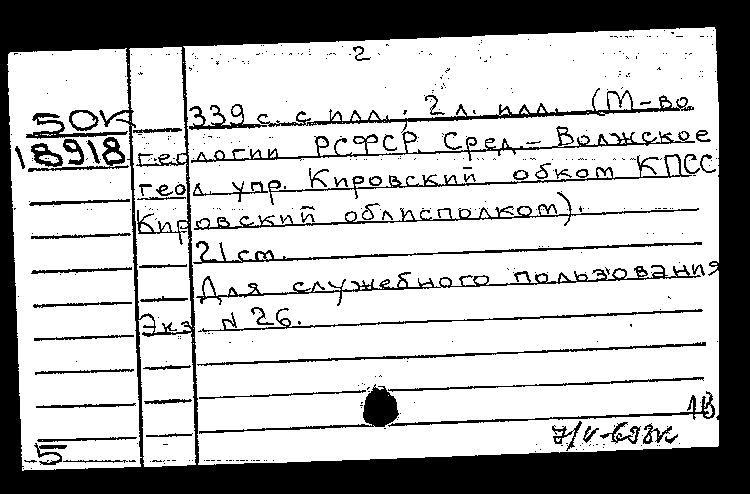 2
50К 339 с. с илл.; 2 л. илл. (М-во
18918 геологии РСФСР. Сред.-Волжское
геол. упр. Кировский обком КПСС
Кировский облисполком).
21 см.
Для служебного пользования
Экз. N 26.
1В.
5